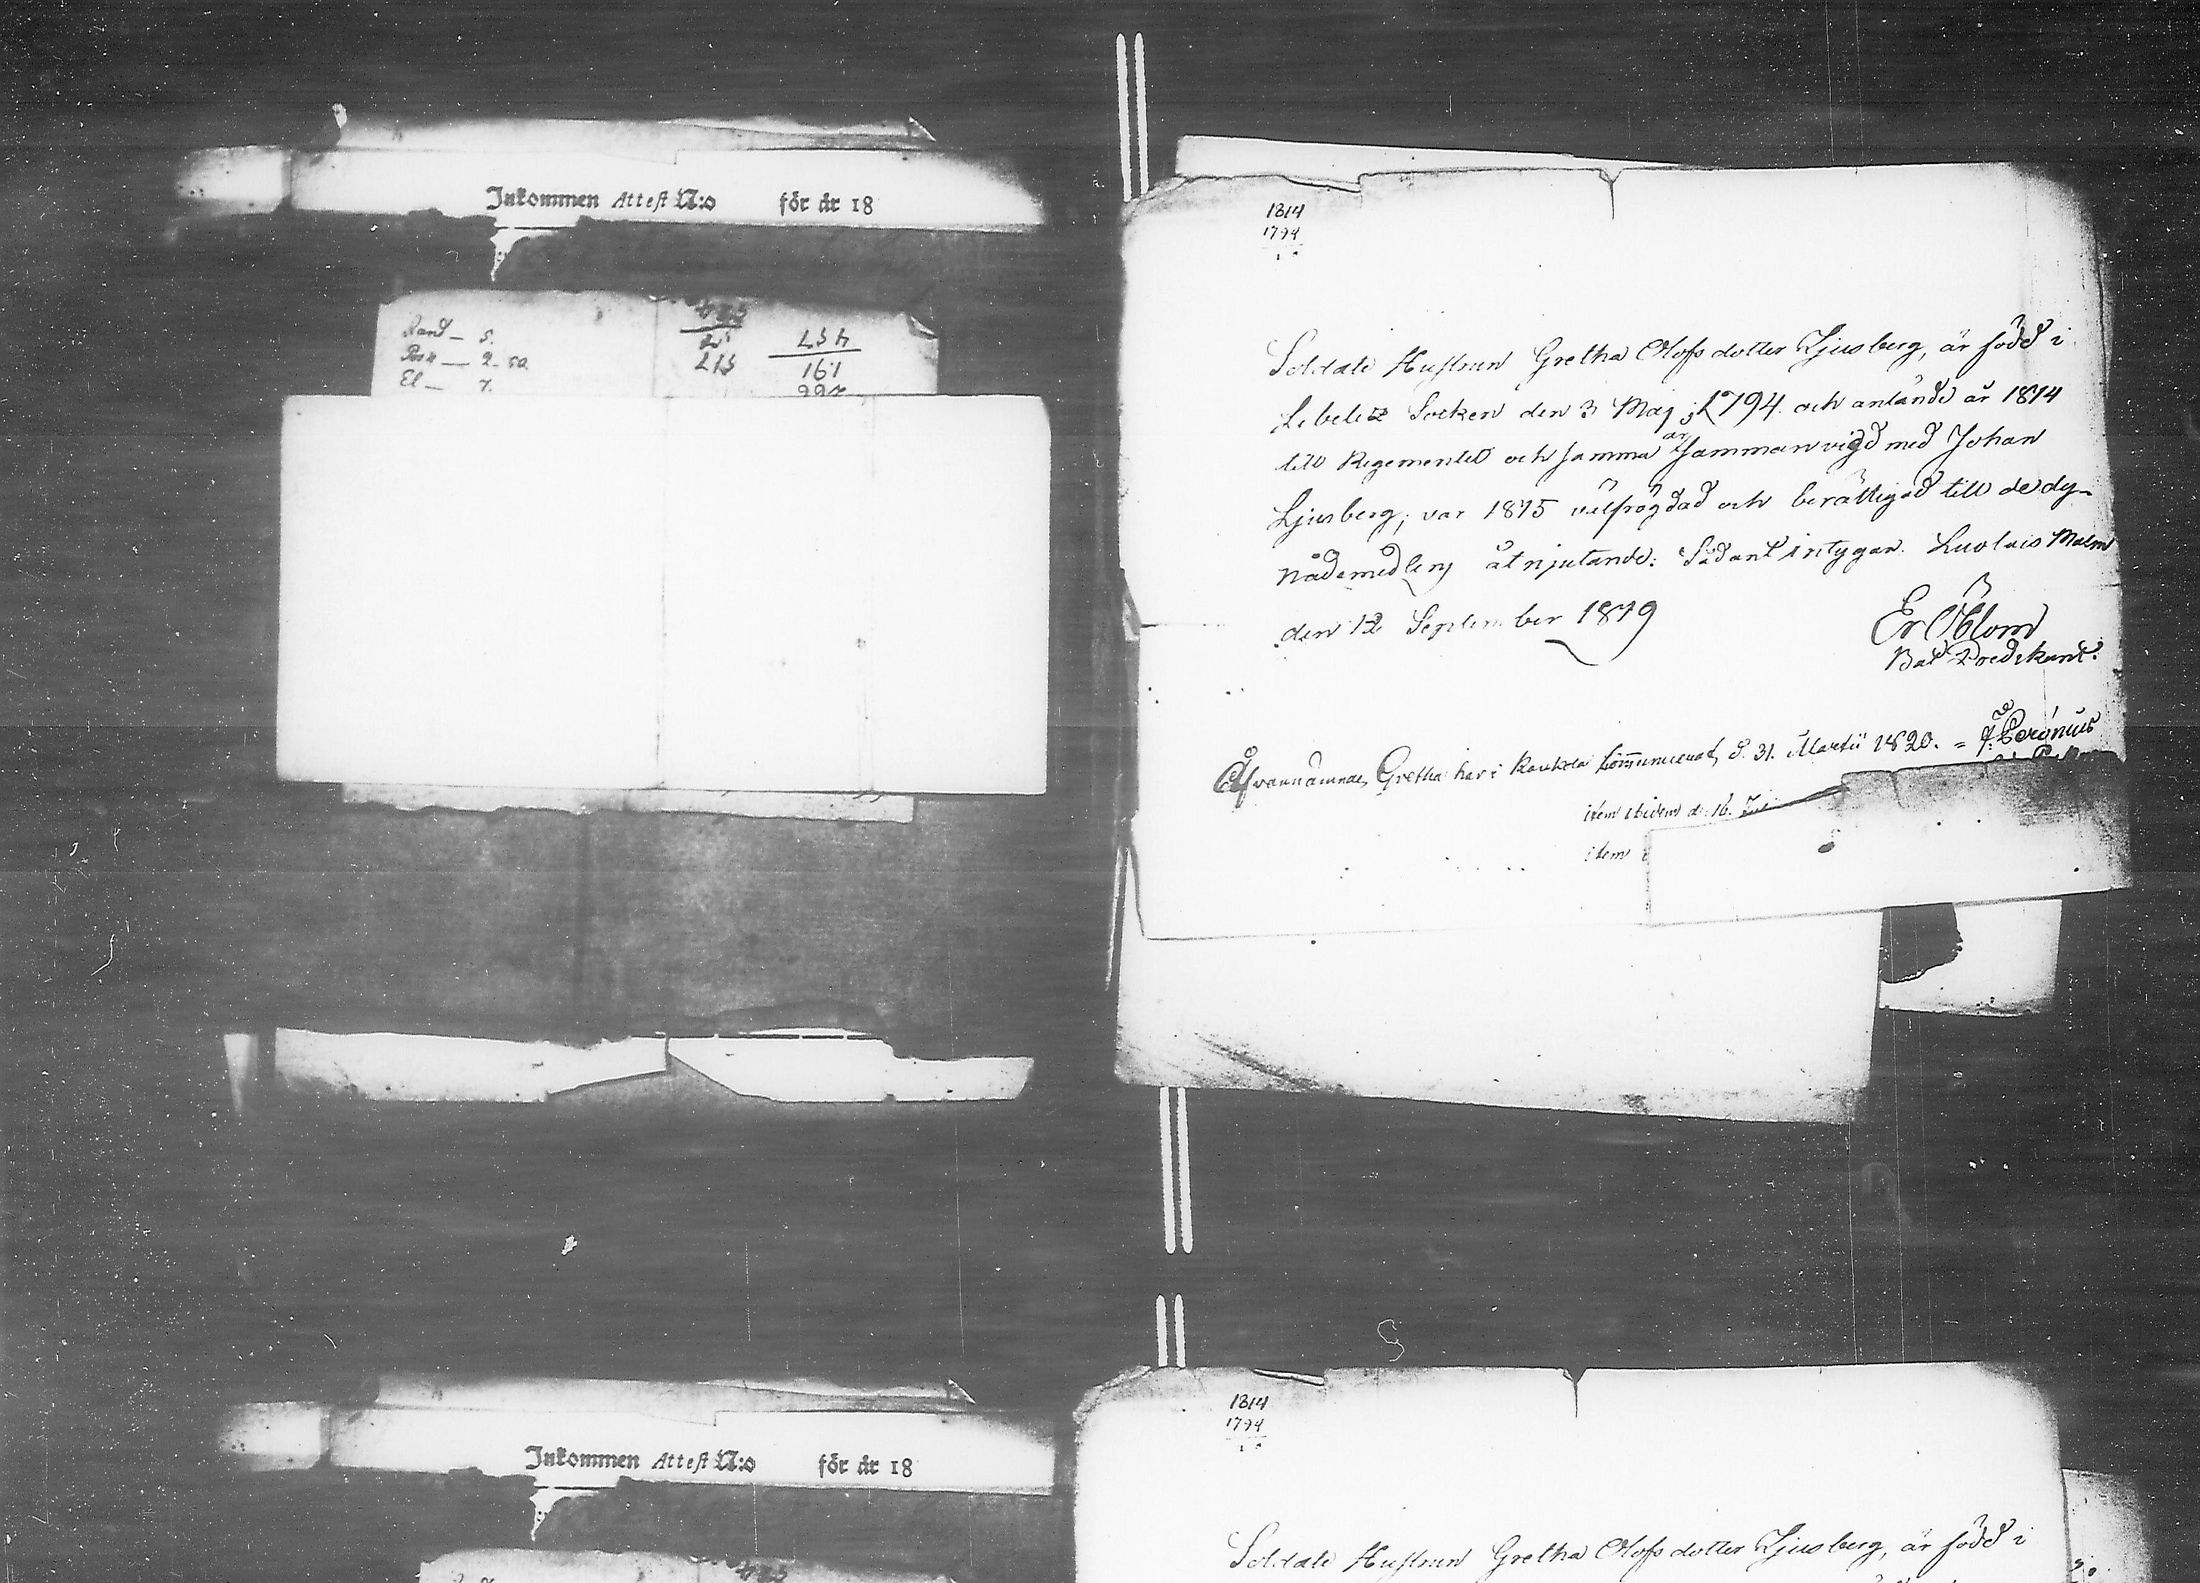 Inkommen Attest N:o för år 18
Rand — 5.
Post — 2. 50
El — 7.
457
161
517
1814
1794
Soldate Hustrun Gretha Olofsdotter Ljusberg, är född i
Libelitz Socken den 3 Maj 1794. och anlände år 1814
till Regementet och samma år samman vigd med Johan
Ljusberg, var 1815 välfrögdad och berättigad till de dy-
Nådemedlens åtnjutande. Sådant intygar. Malm
den 12 September 1819
Er Blom
Bat Predikant.
Åfvannämnde Gretha har i communicerat d. 31. Martii 1820.
item ibidem d. 16.
item
Inkommen Attest N:o för år 18
1814
1794
Soldate Hustrun Gretha Olofsdotter Ljusberg, är född i